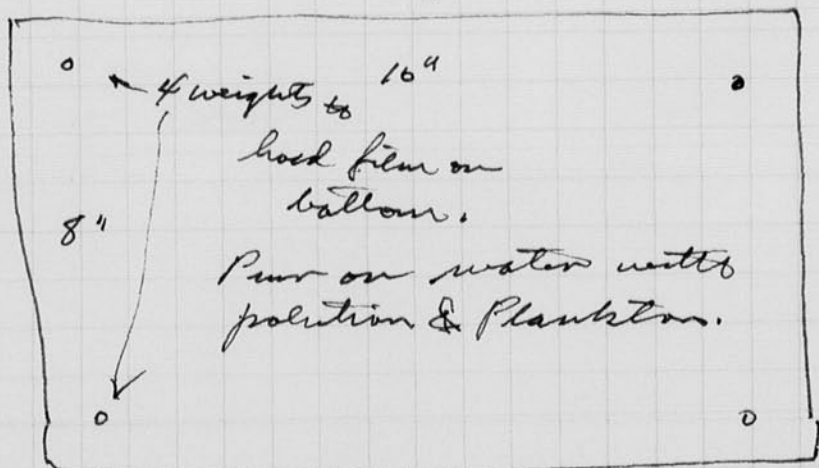 16"
4 weights to
hold film on
bottom.
8"
Pour on water with
polution & Plankton.